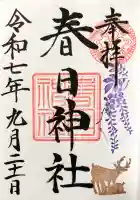 奉拝
春日神社
令和七年九月二十二日